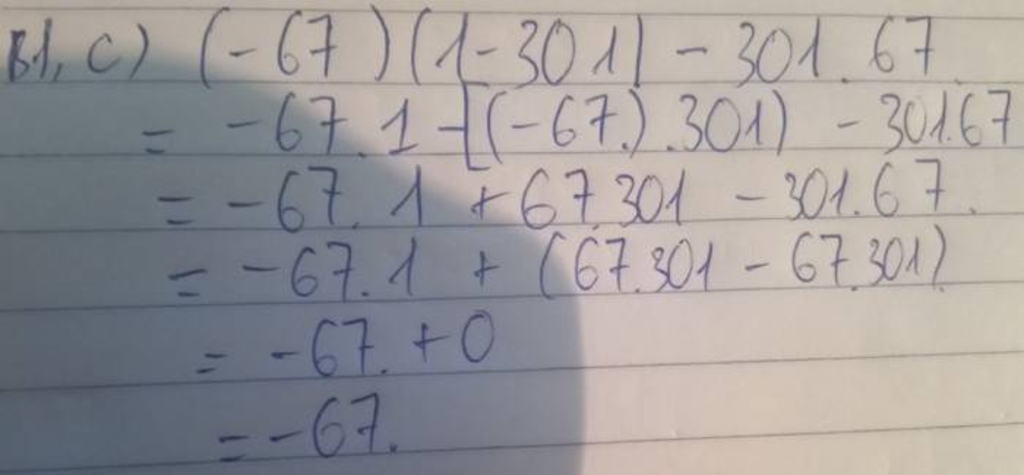 B1, c) (-67)(1-301) - 301.67
= -67.1 -[(-67.).301) - 301.67
= -67.1 + 67.301 - 301.67.
= -67.1 + (67.301 - 67.301)
= -67. + 0
= -67.